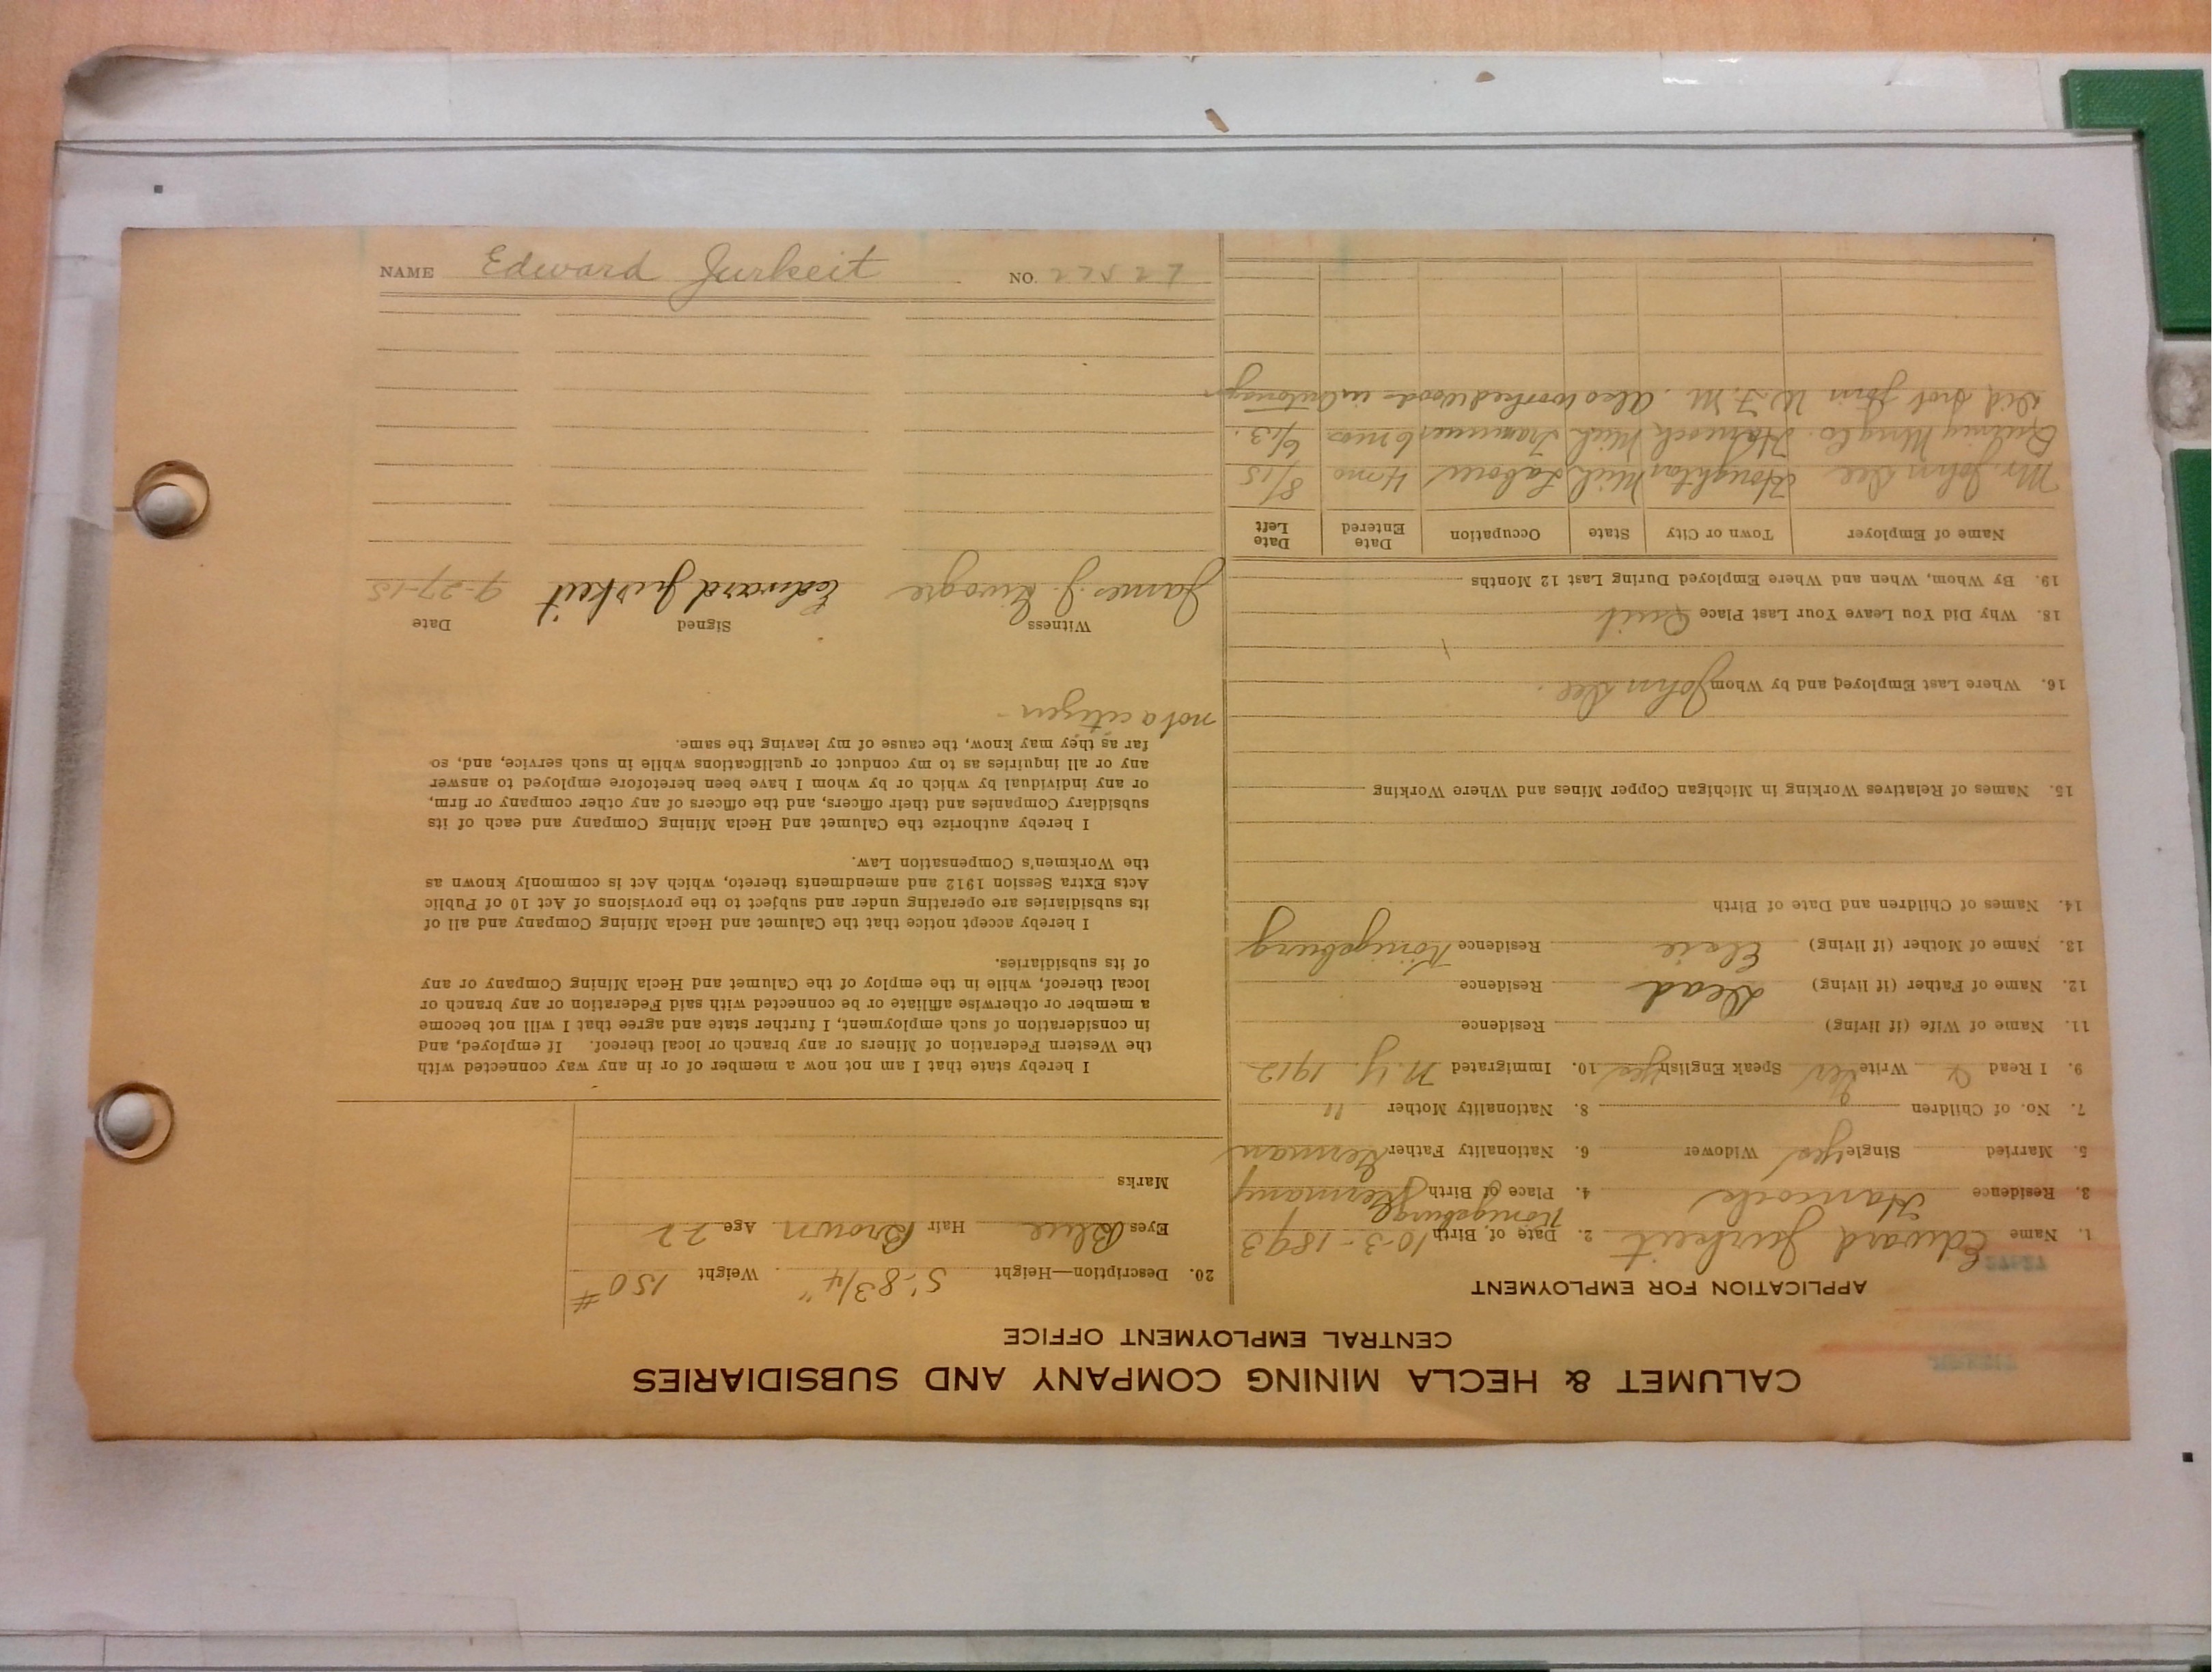 CALUMET & HECLA MINING COMPANY AND SUBSIDIARIES
CENTRAL EMPLOYMENT OFFICE
APPLICATION FOR EMPLOYMENT
1. Name Edward Jurkeit 2. Date of Birth 10-3-1893
3. Residence Hancock 4. Place of Birth Konigsburg Germany
5. Married Single yes Widower 6. Nationality Father German
7. No. of Children 8. Nationality Mother "
9. I Read & Write Ger Speak English yes 10. Immigrated N.Y. 1912
11. Name of Wife (if living) Residence
12. Name of Father (if living) Dead Residence
13. Name of Mother (if living) Elsie Residence Konigsburg
14. Names of Children and Date of Birth
15. Names of Relatives Working in Michigan Copper Mines and Where Working
16. Where Last Employed and by Whom John Dee.
18. Why Did You Leave Your Last Place Quit
19. By Whom, When and Where Employed During Last 12 Months
Name of Employer Town or City State Occupation Date Entered Date Left
Mr. John Dee Houghton Mich Laborer 4 mo 8/15
Quincy Mng Co. Hancock Mich Trammer 6 mos 6/13.
Did not join W.F.M. Also worked woods in
20. Description—Height 5'-8 3/4" Weight 150#
Eyes Blue Hair Brown Age 22
Marks
I hereby state that I am not now a member of or in any way connected with
the Western Federation of Miners or any branch or local thereof. If employed, and
in consideration of such employment, I further state and agree that I will not become
a member or otherwise affiliate or be connected with said Federation or any branch or
local thereof, while in the employ of the Calumet and Hecla Mining Company or any
of its subsidiaries.
I hereby accept notice that the Calumet and Hecla Mining Company and all of
its subsidiaries are operating under and subject to the provisions of Act 10 of Public
Acts Extra Session 1912 and amendments thereto, which Act is commonly known as
the Workmen's Compensation Law.
I hereby authorize the Calumet and Hecla Mining Company and each of its
subsidiary Companies and their officers, and the officers of any other company or firm,
or any individual by which or by whom I have been heretofore employed to answer
any or all inquiries as to my conduct or qualifications while in such service, and, so
far as they may know, the cause of my leaving the same.
not a citizen -
Witness Signed Date
James J. Edward Jurkeit 9-27-15
NAME Edward Jurkeit NO.